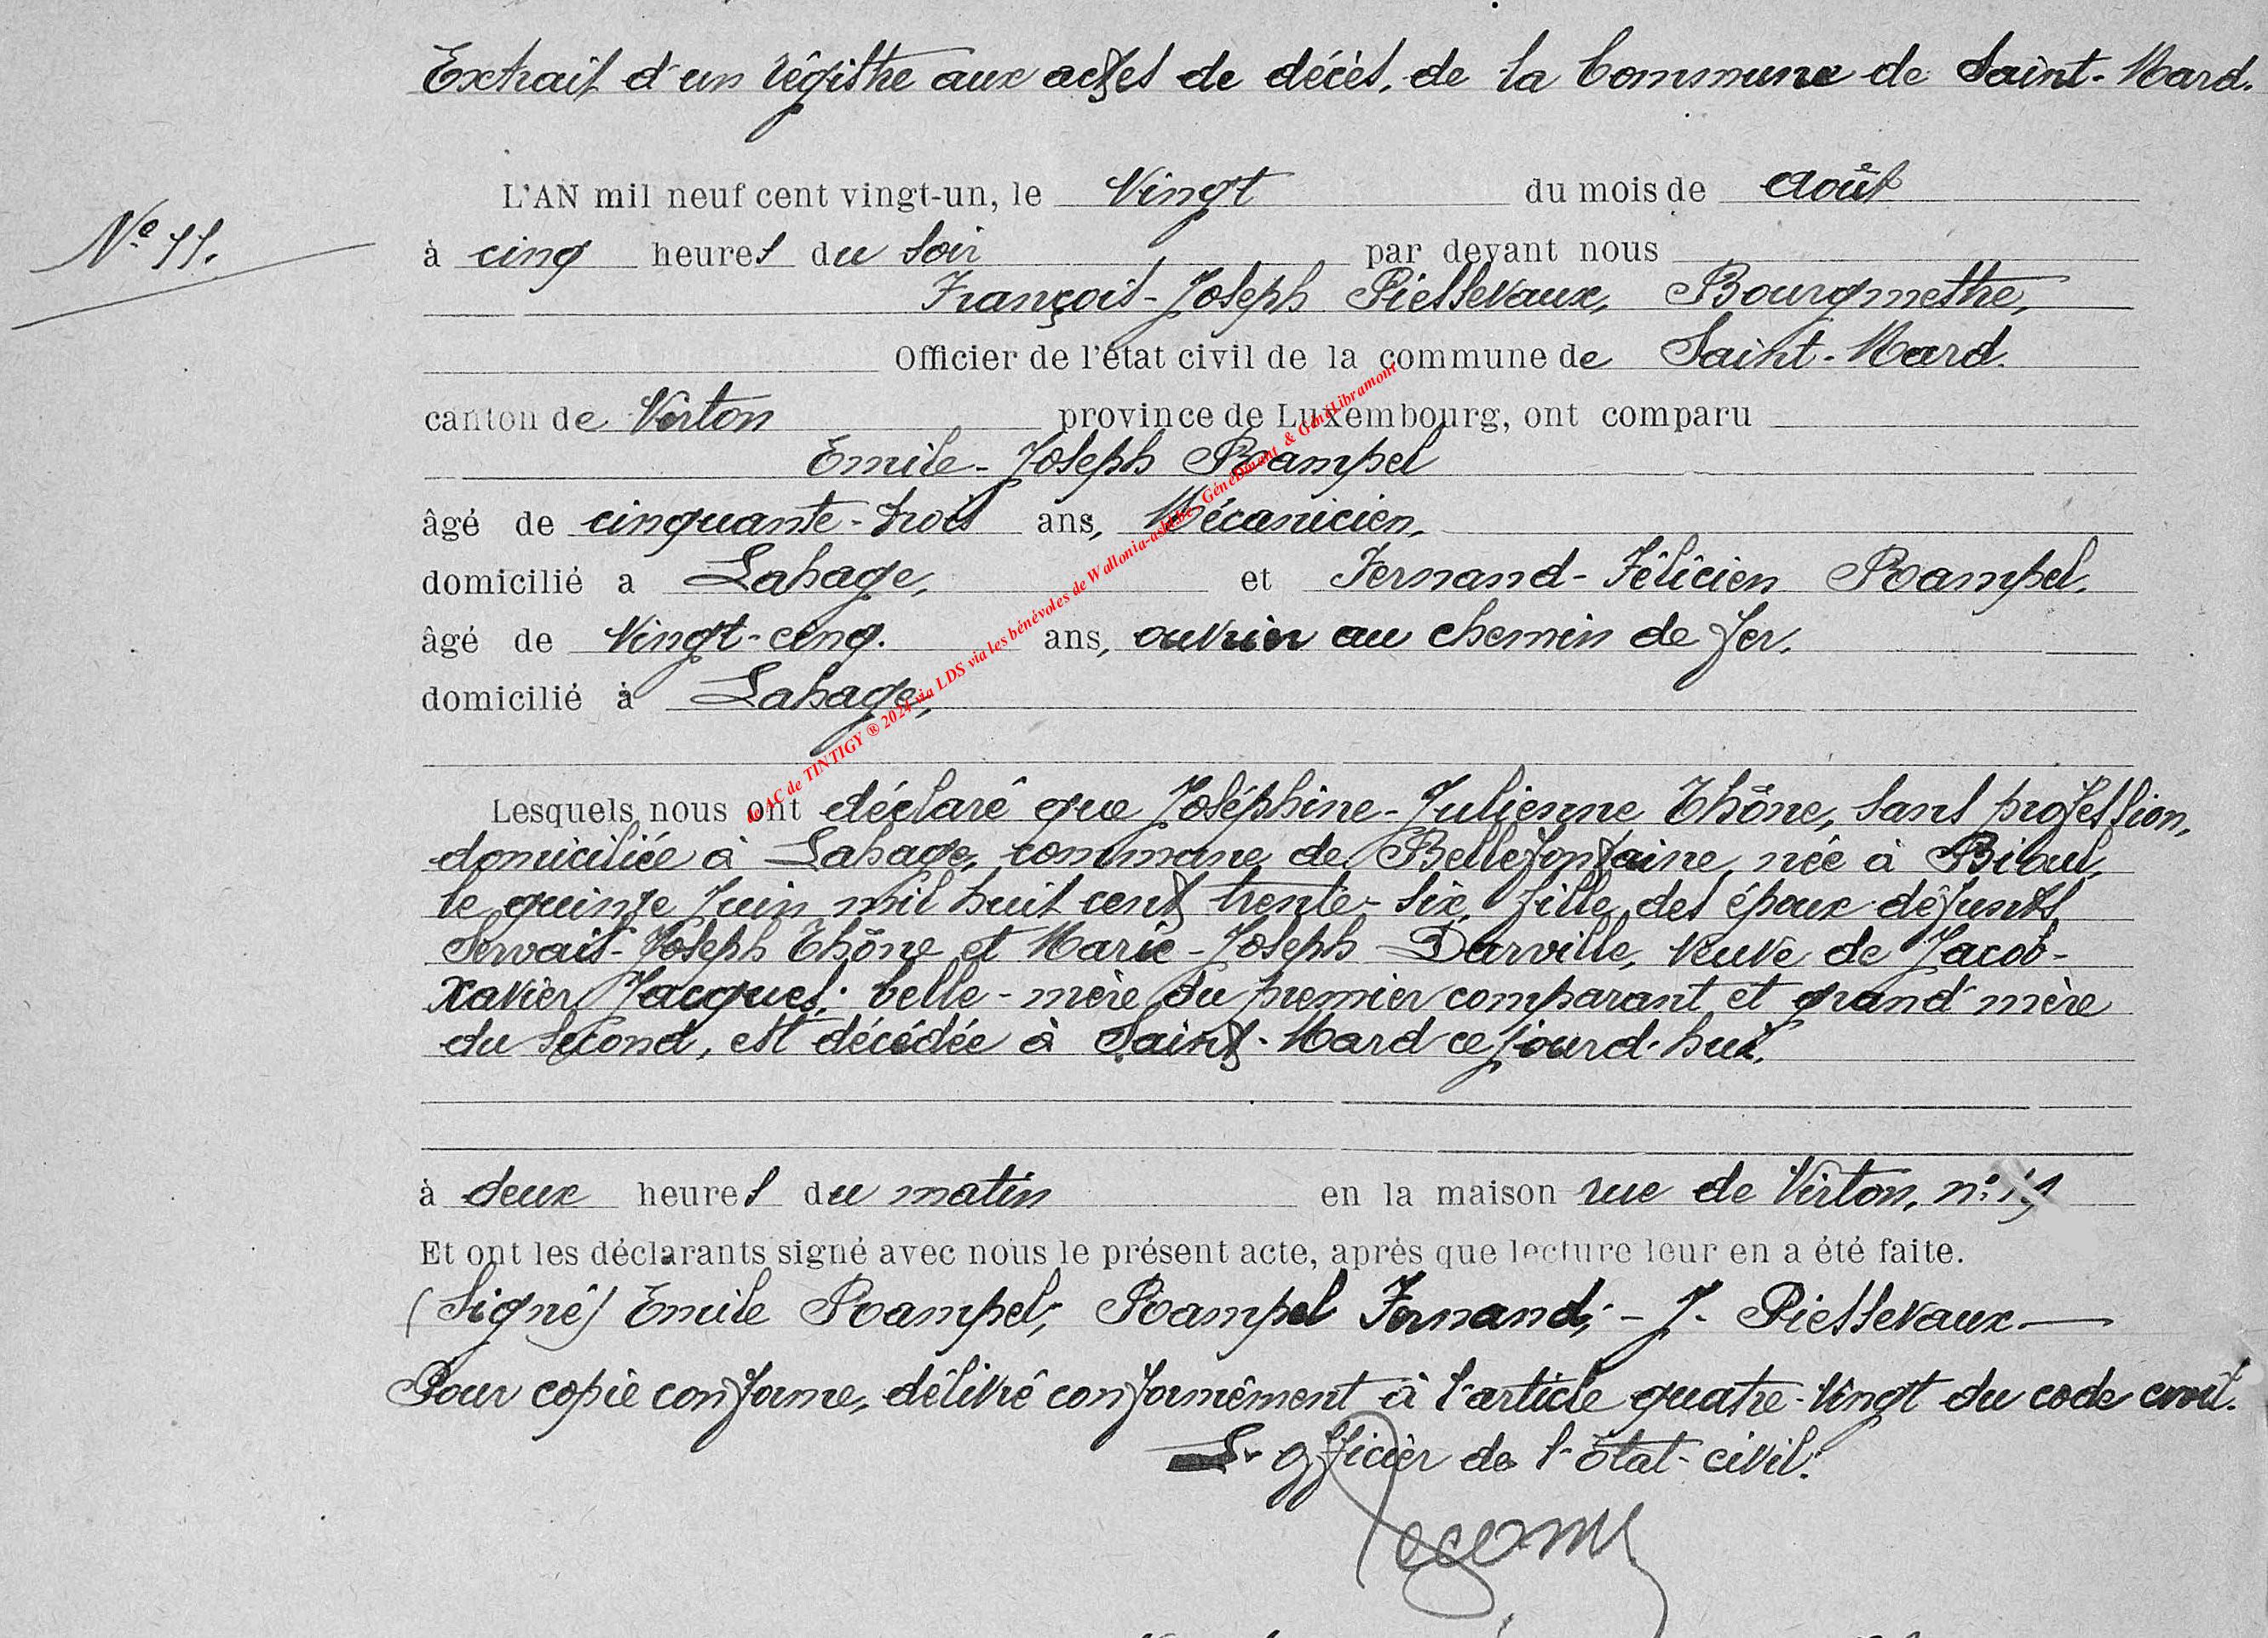 Extrait d'un régistre aux actes de décès, de la Commune de Saint-Mard.
L'AN mil neuf cent vingt-un, le Vingt du mois de Août
N° 11.
à cinq heures du soir par devant nous
François-Joseph Piessevaux, Bourgmestre,
Officier de l'état civil de la commune de Saint-Mard.
canton de Virton province de Luxembourg, ont comparu
Emile-Joseph Rampel
âgé de cinquante-trois ans, Mécanicien,
domicilié a Lahage, et Fernand-Félicien Rampel.
âgé de Vingt-cinq. ans, ouvrier au chemin de fer.
domicilié à Lahage,
de AC de TINTIGY ® 2024 via LDS via les bénévoles de Wallonia-asbl.be, GénéDinant & GénéLibramont
Lesquels nous ont déclaré que Joséphine-Julienne Thône, sans profession,
domiciliée à Lahage, commune de Bellefontaine, née à Bioul,
le quinze Juin mil huit cent trente-six, fille des époux défunts
Servais-Joseph Thône et Marie-Joseph Darville, veuve de Jacob-
Xavier Jacques; belle-mère du premier comparant et grand'mère
du second, est décédée à Saint-Mard ce jourd'hui,
à deux heures du matin en la maison rue de Virton, n°
Et ont les déclarants signé avec nous le présent acte, après que lecture leur en a été faite.
(Signé) Emile Rampel; Rampel Fernand; - J. Piessevaux
Pour copie conforme, délivré conformément à l'article quatre-vingt du code civil.
L'officier de l'état-civil.